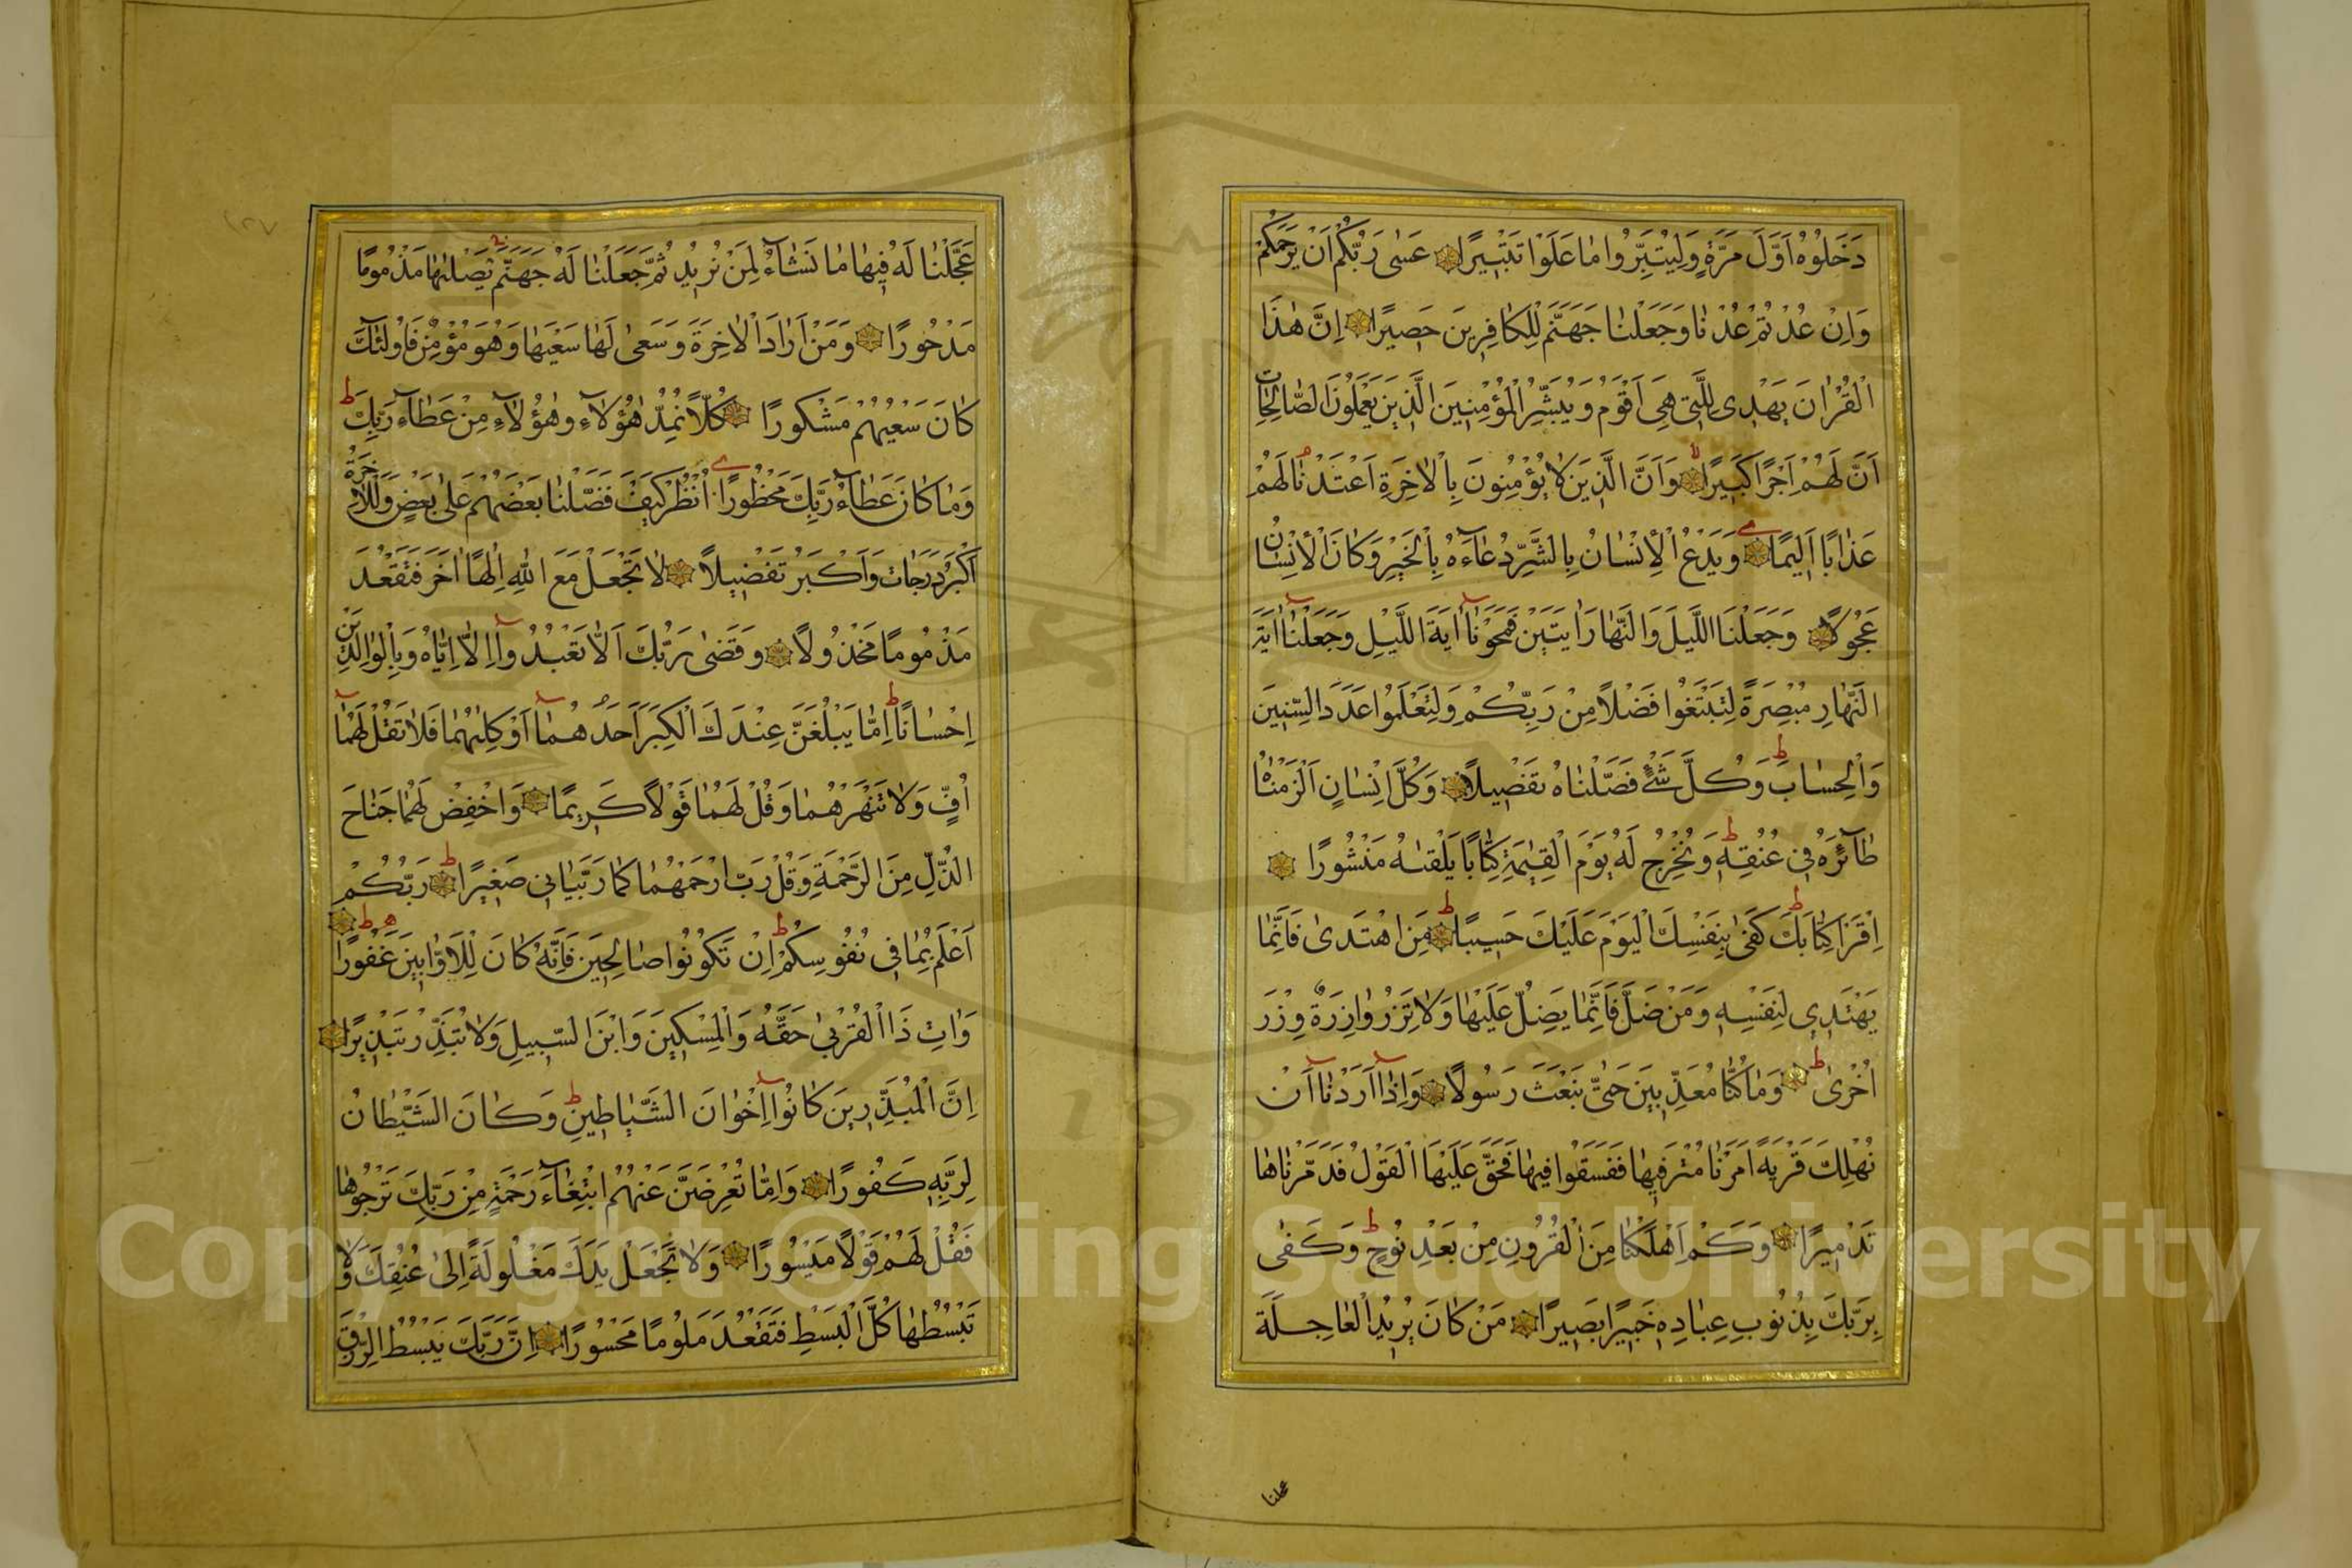 دَخَلُوهُ اَوَّلَ مَرَّةٍ وَلِيُتَبِّرُوا مَا عَلَوْا تَتْبِيرًا عَسٰى رَبُّكُمْ اَنْ يَرْحَمَكُمْ
وَاِنْ عُدْتُمْ عُدْنَا وَجَعَلْنَا جَهَنَّمَ لِلْكَافِرِينَ حَصِيرًا اِنَّ هٰذَا
الْقُرْاٰنَ يَهْدِى لِلَّتِى هِىَ اَقْوَمُ وَيُبَشِّرُ الْمُؤْمِنِينَ الَّذِينَ يَعْمَلُونَ الصَّالِحَاتِ
اَنَّ لَهُمْ اَجْرًا كَبِيرًا وَاَنَّ الَّذِينَ لَا يُؤْمِنُونَ بِالْاٰخِرَةِ اَعْتَدْنَا لَهُمْ
عَذَابًا اَلِيمًا وَيَدْعُ الْاِنْسَانُ بِالشَّرِّ دُعَاءَهُ بِالْخَيْرِ وَكَانَ الْاِنْسَانُ
عَجُولًا وَجَعَلْنَا اللَّيْلَ وَالنَّهَارَ اٰيَتَيْنِ فَمَحَوْنَا اٰيَةَ اللَّيْلِ وَجَعَلْنَا اٰيَةَ
النَّهَارِ مُبْصِرَةً لِتَبْتَغُوا فَضْلًا مِنْ رَبِّكُمْ وَلِتَعْلَمُوا عَدَدَ السِّنِينَ
وَالْحِسَابَ وَكُلَّ شَىْءٍ فَصَّلْنَاهُ تَفْصِيلًا وَكُلَّ اِنْسَانٍ اَلْزَمْنَاهُ
طَآئِرَهُ فِى عُنُقِهِ وَنُخْرِجُ لَهُ يَوْمَ الْقِيٰمَةِ كِتَابًا يَلْقٰيهُ مَنْشُورًا
اِقْرَأْ كِتَابَكَ كَفٰى بِنَفْسِكَ الْيَوْمَ عَلَيْكَ حَسِيبًا مَنِ اهْتَدٰى فَاِنَّمَا
يَهْتَدِى لِنَفْسِهِ وَمَنْ ضَلَّ فَاِنَّمَا يَضِلُّ عَلَيْهَا وَلَا تَزِرُ وَازِرَةٌ وِزْرَ
اُخْرٰى وَمَا كُنَّا مُعَذِّبِينَ حَتّٰى نَبْعَثَ رَسُولًا وَاِذَا اَرَدْنَا اَنْ
نُهْلِكَ قَرْيَةً اَمَرْنَا مُتْرَفِيهَا فَفَسَقُوا فِيهَا فَحَقَّ عَلَيْهَا الْقَوْلُ فَدَمَّرْنَاهَا
تَدْمِيرًا وَكَمْ اَهْلَكْنَا مِنَ الْقُرُونِ مِنْ بَعْدِ نُوحٍ وَكَفٰى
بِرَبِّكَ بِذُنُوبِ عِبَادِهِ خَبِيرًا بَصِيرًا مَنْ كَانَ يُرِيدُ الْعَاجِلَةَ
عجلنا
عَجَّلْنَا لَهُ فِيهَا مَا نَشَآءُ لِمَنْ نُرِيدُ ثُمَّ جَعَلْنَا لَهُ جَهَنَّمَ يَصْلٰيهَا مَذْمُومًا
مَدْحُورًا وَمَنْ اَرَادَ الْاٰخِرَةَ وَسَعٰى لَهَا سَعْيَهَا وَهُوَ مُؤْمِنٌ فَاُولٰئِكَ
كَانَ سَعْيُهُمْ مَشْكُورًا كُلًّا نُمِدُّ هٰؤُلَاءِ وَهٰؤُلَاءِ مِنْ عَطَآءِ رَبِّكَ
وَمَا كَانَ عَطَآءُ رَبِّكَ مَحْظُورًا اُنْظُرْ كَيْفَ فَضَّلْنَا بَعْضَهُمْ عَلٰى بَعْضٍ وَلَلْاٰخِرَةُ
اَكْبَرُ دَرَجَاتٍ وَاَكْبَرُ تَفْضِيلًا لَا تَجْعَلْ مَعَ اللّٰهِ اِلٰهًا اٰخَرَ فَتَقْعُدَ
مَذْمُومًا مَخْذُولًا وَقَضٰى رَبُّكَ اَلَّا تَعْبُدُوا اِلَّا اِيَّاهُ وَبِالْوَالِدَيْنِ
اِحْسَانًا اِمَّا يَبْلُغَنَّ عِنْدَكَ الْكِبَرَ اَحَدُهُمَا اَوْ كِلٰهُمَا فَلَا تَقُلْ لَهُمَا
اُفٍّ وَلَا تَنْهَرْهُمَا وَقُلْ لَهُمَا قَوْلًا كَرِيمًا وَاخْفِضْ لَهُمَا جَنَاحَ
الذُّلِّ مِنَ الرَّحْمَةِ وَقُلْ رَبِّ ارْحَمْهُمَا كَمَا رَبَّيَانِى صَغِيرًا رَبُّكُمْ
اَعْلَمُ بِمَا فِى نُفُوسِكُمْ اِنْ تَكُونُوا صَالِحِينَ فَاِنَّهُ كَانَ لِلْاَوَّابِينَ غَفُورًا
وَاٰتِ ذَا الْقُرْبٰى حَقَّهُ وَالْمِسْكِينَ وَابْنَ السَّبِيلِ وَلَا تُبَذِّرْ تَبْذِيرًا
اِنَّ الْمُبَذِّرِينَ كَانُوا اِخْوَانَ الشَّيَاطِينِ وَكَانَ الشَّيْطَانُ
لِرَبِّهِ كَفُورًا وَاِمَّا تُعْرِضَنَّ عَنْهُمُ ابْتِغَآءَ رَحْمَةٍ مِنْ رَبِّكَ تَرْجُوهَا
فَقُلْ لَهُمْ قَوْلًا مَيْسُورًا وَلَا تَجْعَلْ يَدَكَ مَغْلُولَةً اِلٰى عُنُقِكَ وَلَا
تَبْسُطْهَا كُلَّ الْبَسْطِ فَتَقْعُدَ مَلُومًا مَحْسُورًا اِنَّ رَبَّكَ يَبْسُطُ الرِّزْقَ
Copyright © King Saud University
1957